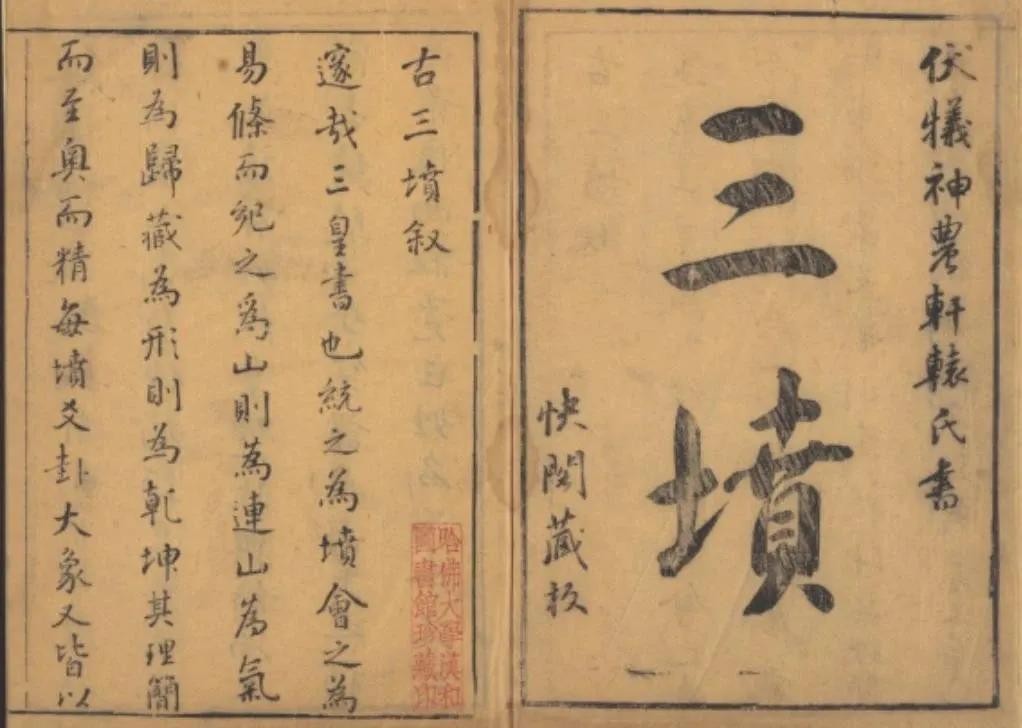 伏犧神農軒轅氏書
三墳
快閣藏板
古三墳叙
邃哉三皇書也統之為墳會之為
易條而紀之爲山則為連山為氣
則為歸藏為形則為乹坤其理簡
而至奥而精每墳爻卦大象又皆以
哈佛大學漢和
圖書館珍藏印